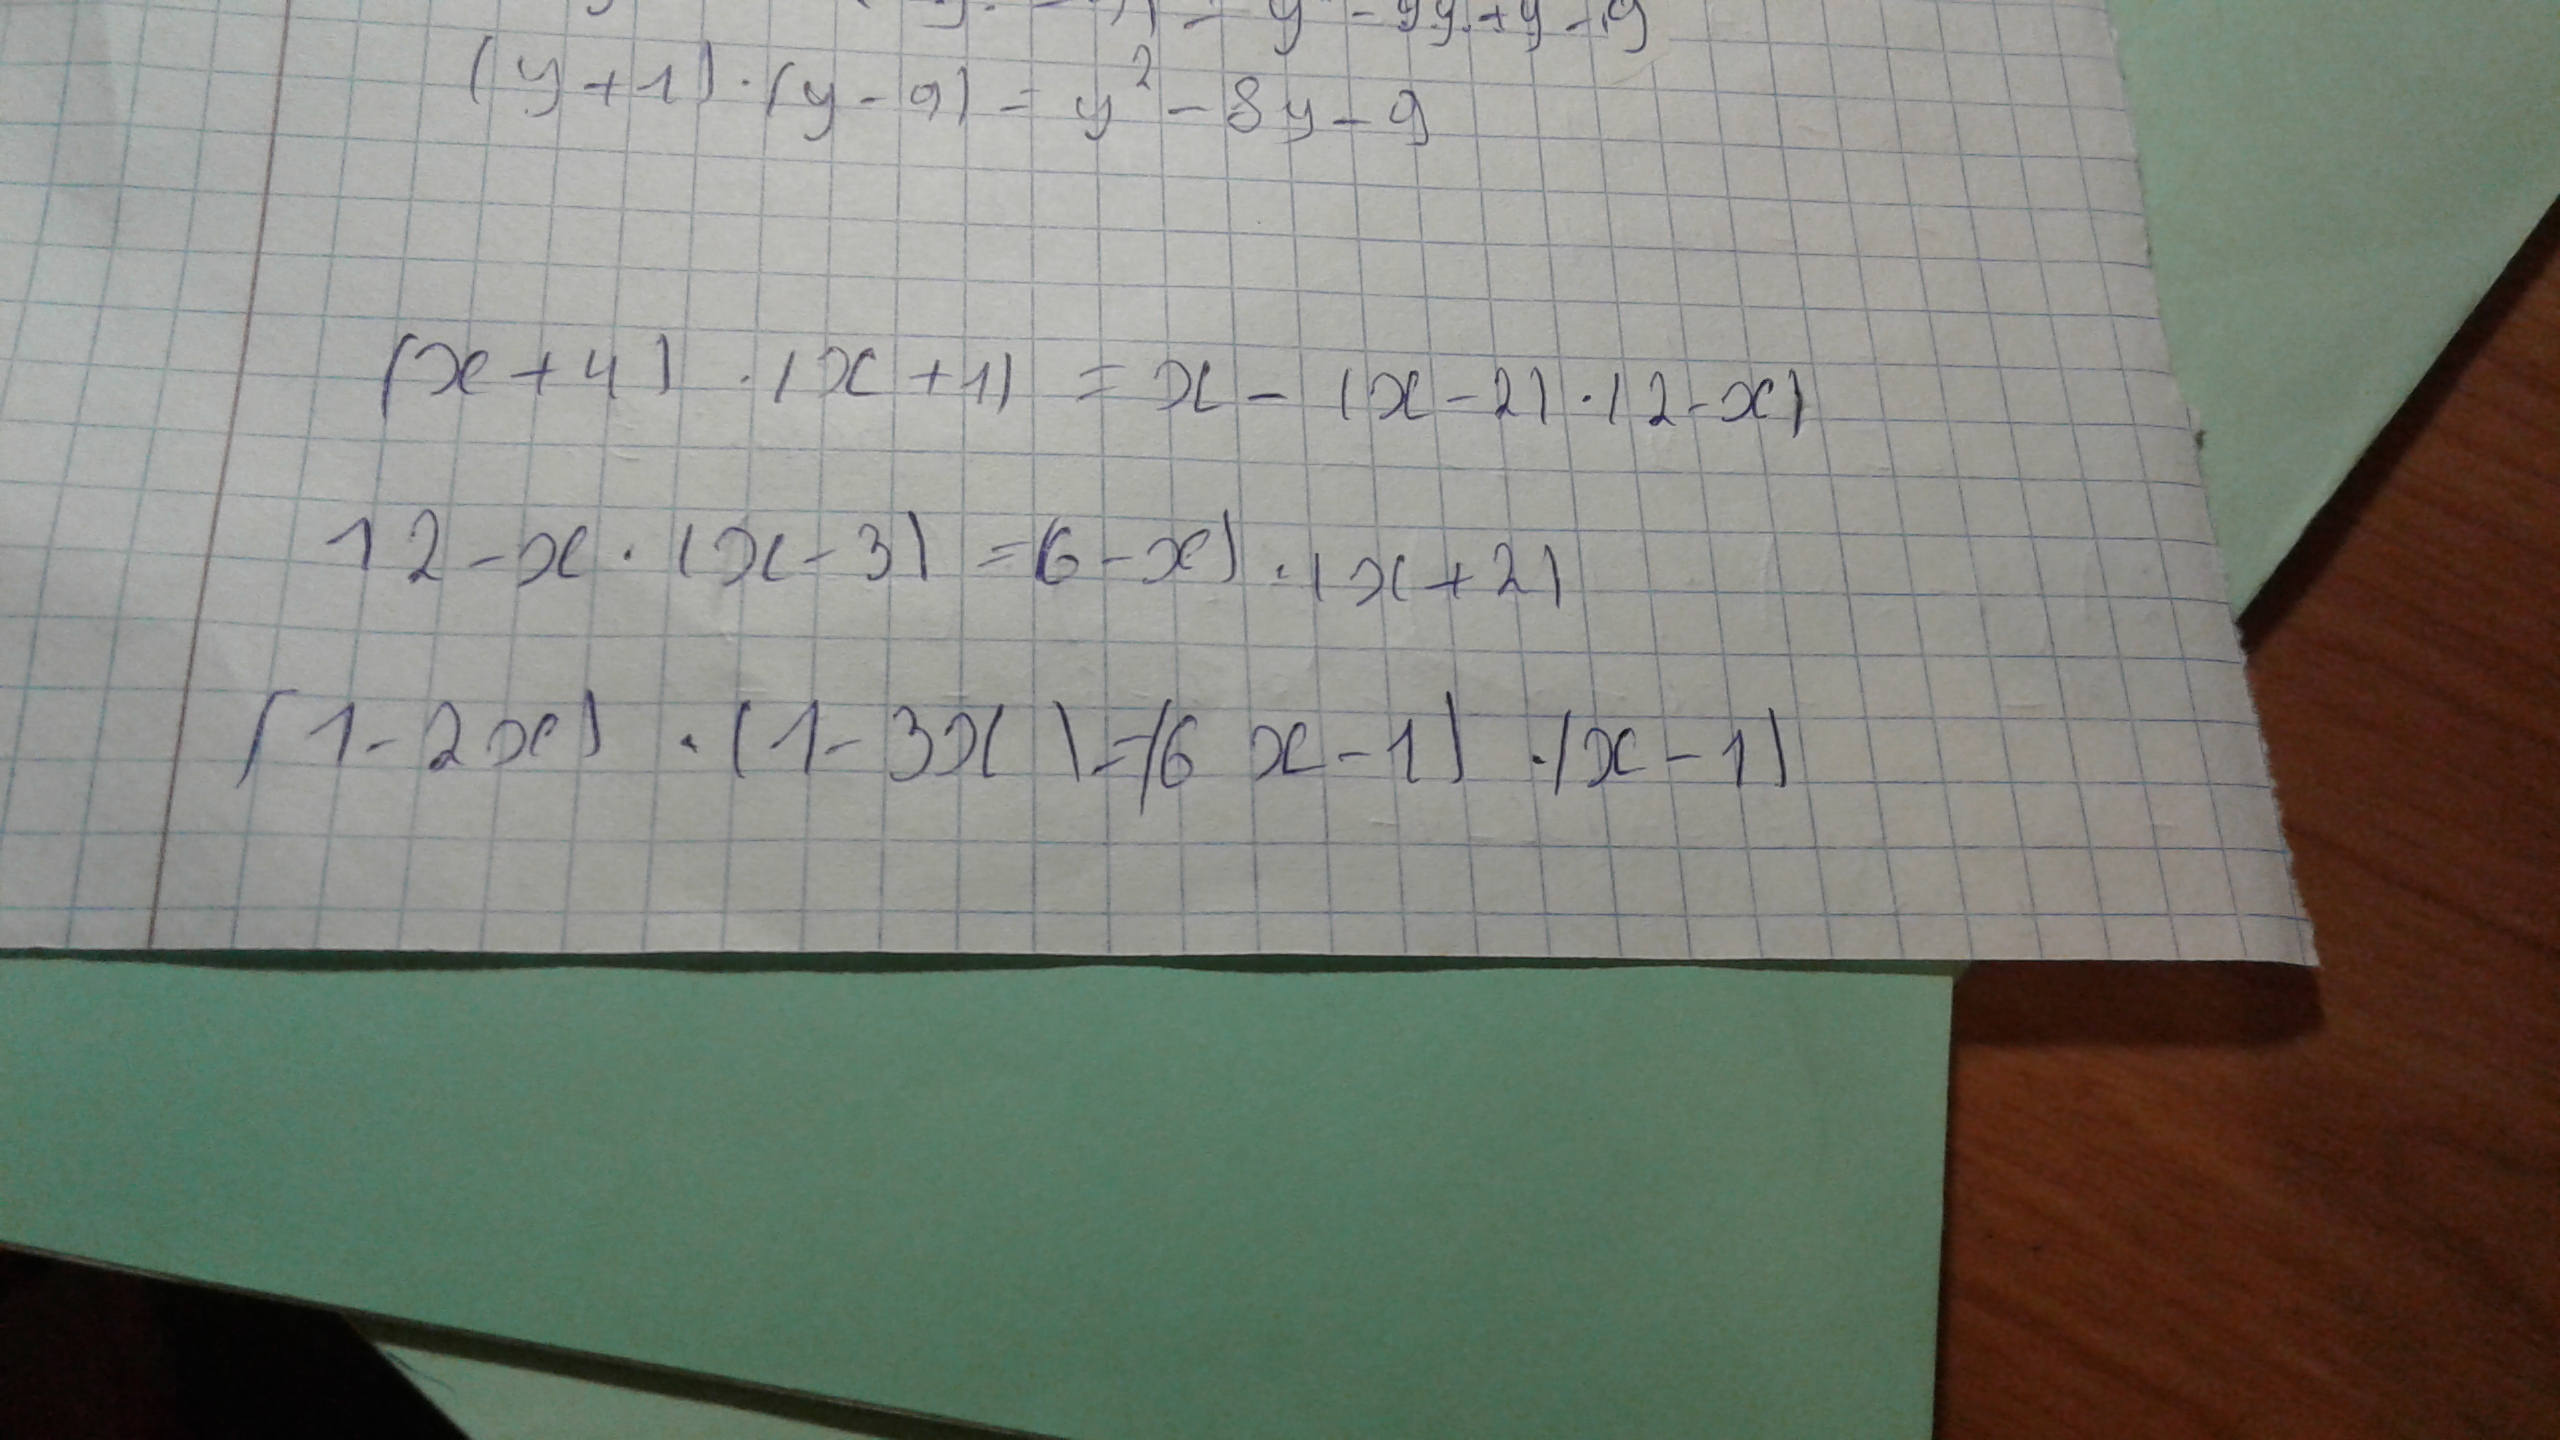 = y² - 9y + y - 9
(y + 1) · (y - 9) = y² - 8y - 9
(x + 4) · (x + 1) = x - (x - 2) · (2 - x)
12 - x · (x - 3) = (6 - x) · (x + 2)
(1 - 2x) · (1 - 3x) = (6x - 1) · (x - 1)